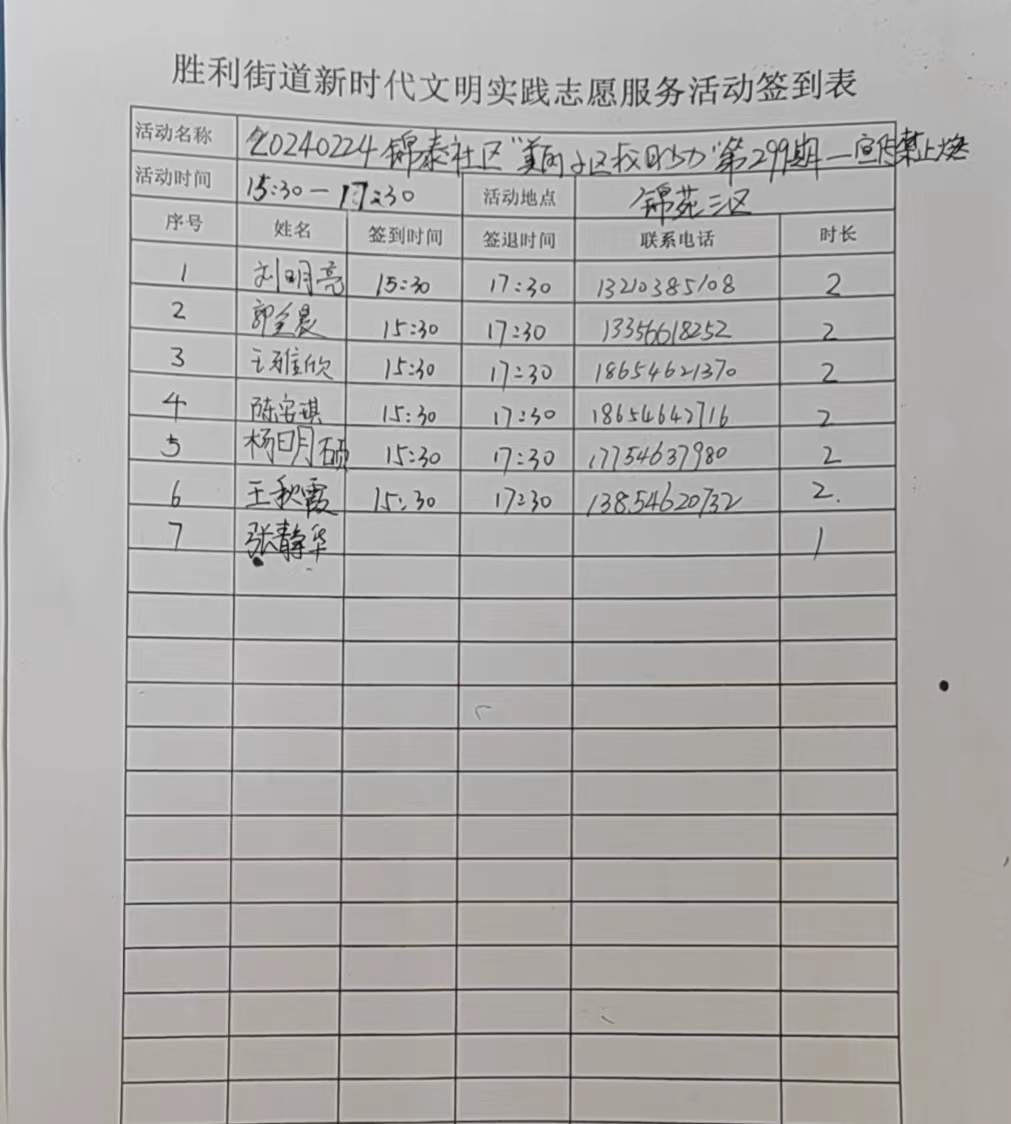 胜利街道新时代文明实践志愿服务活动签到表
活动名称 20240224锦泰社区"美丽 区 助力"第299期—宣传禁止燃
活动时间 15:30—17:30 活动地点 锦苑三区
序号 姓名 签到时间 签退时间 联系电话 时长
1 刘明亮 15:30 17:30 13210385108 2
2 郭全晨 15:30 17:30 13356618252 2
3 王雅欣 15:30 17:30 18654621370 2
4 陈安琪 15:30 17:30 18654642716 2
5 杨明硕 15:30 17:30 17754637980 2
6 王秋霞 15:30 17:30 13854620732 2.
7 张静华 1